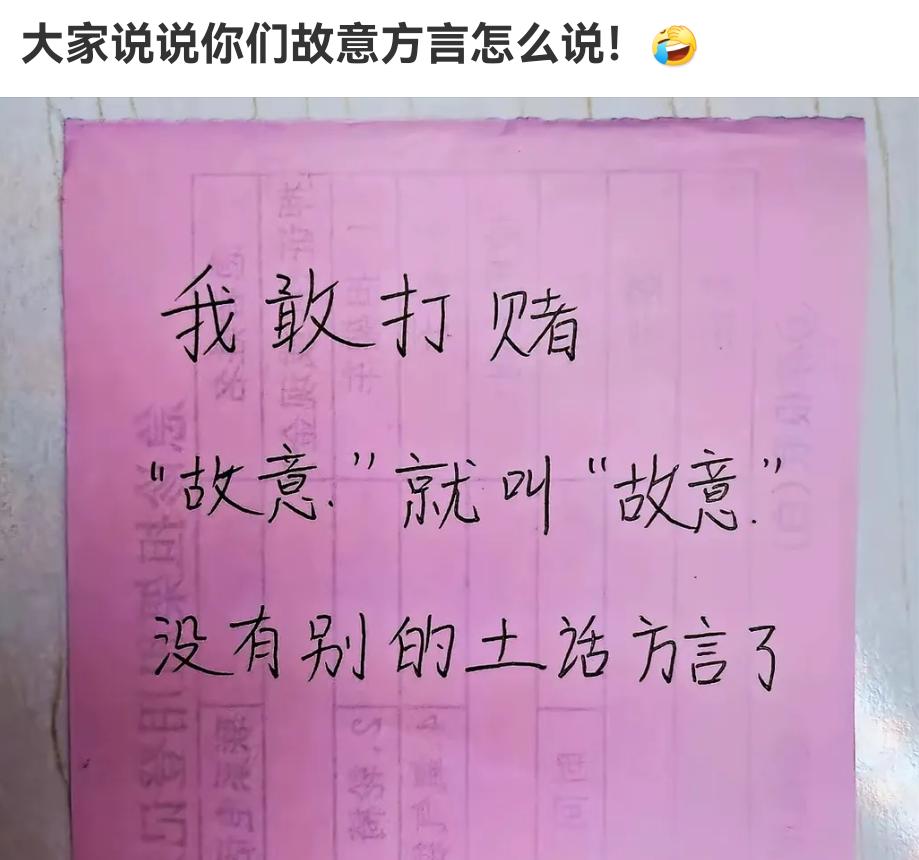 大家说说你们故意方言怎么说！🤣
我敢打赌
“故意.”就叫“故意.”
没有别的土话方言了